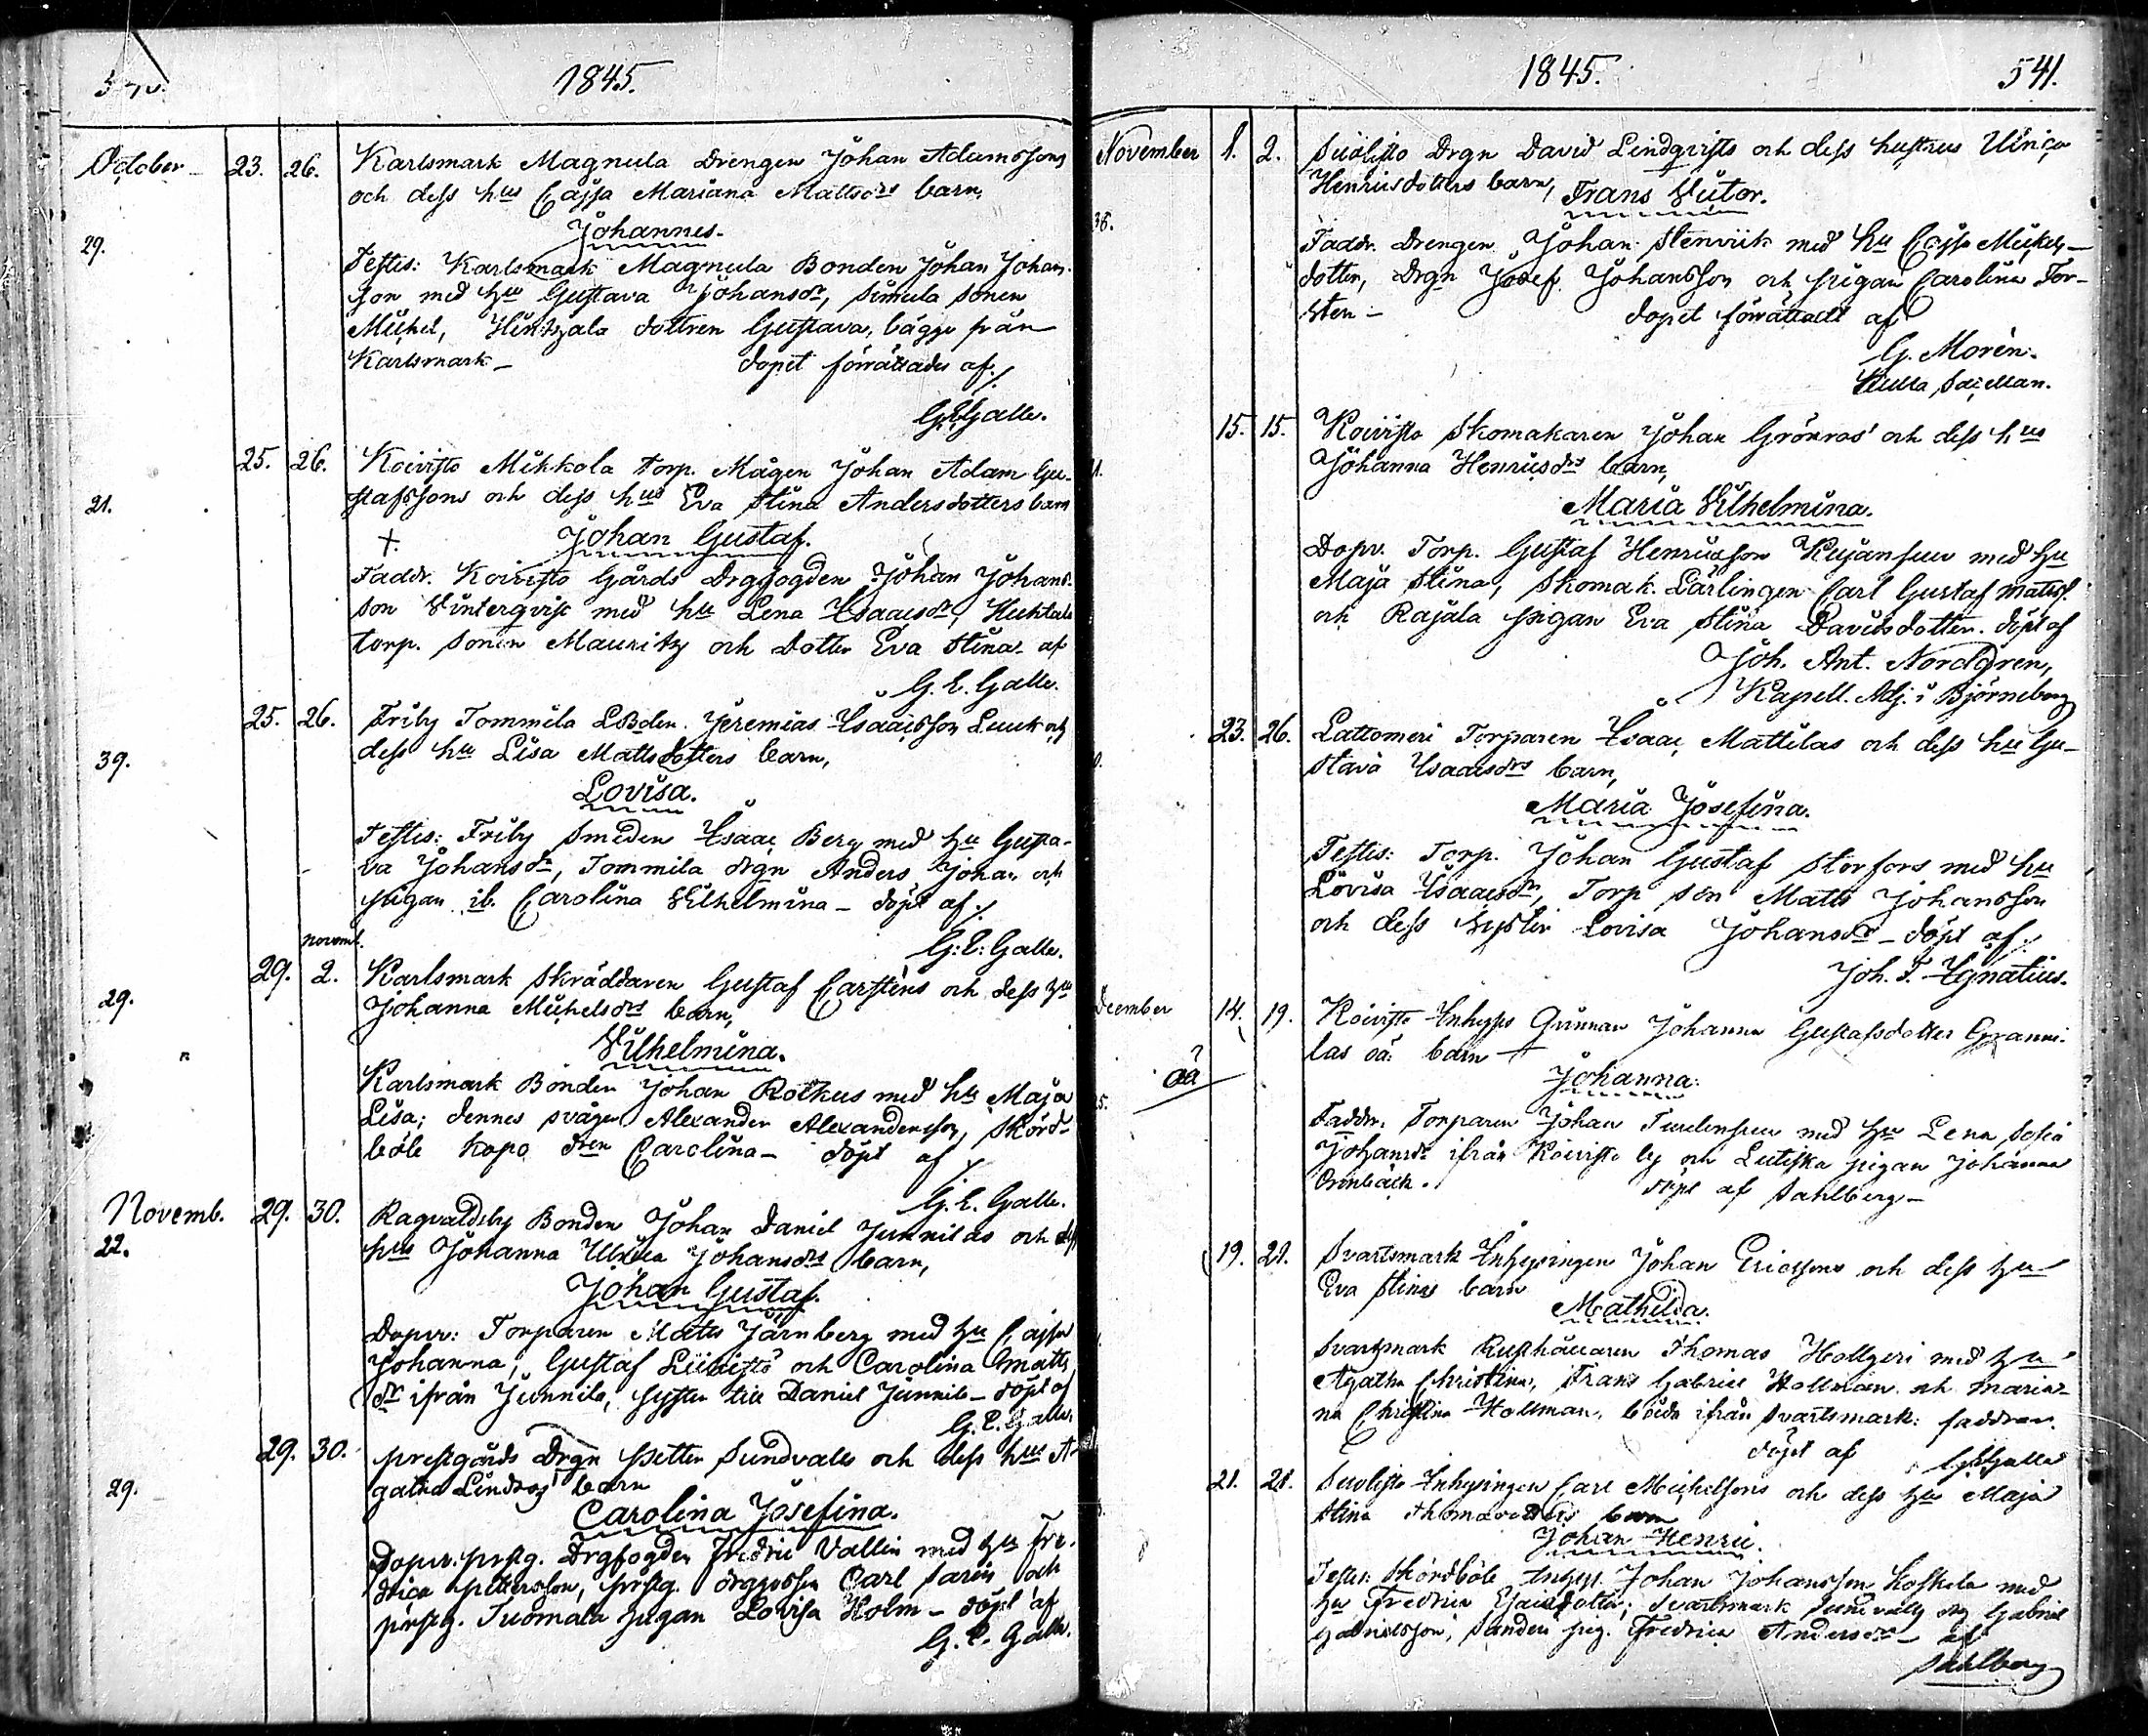 1845.
October 23. 26. Karlsmark Magnula Drengen Johan Adamssons
och dess hus Cajsa Mariana Mattsdrs barn,
Johannes.
29.
Testis: Karlsmark Magnula Bonden Johan Johans-
son med hu Gustava Johansdr, Simula Sonen
Michel, dottren Gustava, bägge från
Karlsmark – dopet förrättades af
G.E. Galle.
25. 26. Koivisto Mikkola torp. Mågen Johan Adam Gu-
stafssons och dess hus Eva Stina Andersdotters barn
21.
+. Johan Gustaf.
Faddr. Koivisto Gårds Drgfogden Johan Johans-
son Vinterqvist med hu Lena Isaacsdr,
torp. Sonen Mauritz och dotter Eva Stina – af
G. E. Galle.
25. 26. Friby Tommila Jeremias Isaacsson och
dess hu Lisa Mattsdotters barn,
39.
Lovisa.
Testis: Friby Smeden Isaac Berg med hu Gusta-
va Johansdr, Tommila drgn Anders Johan och
pigan ib. Carolina Vilhelmina – döpt af
G: E: Galle.
novemb.
29. 2. Karlsmark Skräddaren Gustaf Carsténs och dess hu
Johanna Michelsdrs barn,
29.
Vilhelmina.
Karlsmark Bonden Johan Rockus med hu Maja
Lisa; dennes svåger Alexander Alexandersson, Skörd-
böle Kopo dren Carolina – döpt af
G. E. Galle.
Novemb. 29. 30. Ragvaldsby Bonden Johan Daniel Junnilas och dess
hus Johanna Ulrica Johansdrs barn,
22.
Johan Gustaf.
Dopv: Torparen Matts Järnberg med hu Cajsa
Johanna; Gustaf och Carolina Matts
dr ifrån Junnila, syster till Daniel Junnila – döpt af
G. E. Galle.
29. 30. prestgårds Drgn Petter Sundvalls och dess hus A-
gatha Lindros' barn
29.
Carolina Josefina.
Dopv: prstg. Drgfogden Fredric Vallin med hu Fre-
drica Pettersson, prstg. Carl Sarén och
prstg. Tuomala pigan Lovisa Holm – döpt af
G. E. Galle.
1845. 541.
November 1. 2. Suolisto Drgn David Lindqvists och dess hustrus Ulrica
Henricsdotters barn, Frans Victor.
Faddr. Drengen Johan Stenvik med hu Cajsa Michels-
dotter, Drgn Josef Johansson och pigan Carolina Tor-
sten – dopet förrättadt af
G. Morén.
Kulla
15. 15. Koivisto Skomakaren Johan Grönroos' och dess hus
Johanna Henricsdrs barn,
Maria Vilhelmina.
Dopv. Torp. Gustaf Henricsson Kujanpuu med hu
Maja Stina, Skomak. Lärlingen Carl Gustaf Mattss.
och Rajala pigan Eva Stina Davidsdotter. döpt af
Joh. Ant. Nordgren,
Kapell. Adj. i Björneborg
23. 26. Lattomeri Torparen Isaac Mattilas och dess hu Gu-
stava Isaacsdrs barn,
Maria Josefina.
Testis: Torp. Johan Gustaf Storfors med hu
Lovisa Isaacsdr, Torp son Matts Johansson
och dess syster Lovisa Johansdr – döpt af
Joh. F. Ignatius.
December 14. 19. Koivisto Inhyses Qvinnan Johanna Gustafsdotter Granni-
las oä. barn –
oä
Johanna.
Faddr. Torparen Johan med hu Lena Sofia
Johansdr ifrån Koivisto by och pigan Johanna
döpt af Sahlberg –
19. 21. Svartsmark Inhysingen Johan Ericssons och dess hu
Eva Stinas barn
Mathilda.
Svartsmark Rusthållaren Thomas Hollgeri med hu
Agatha Christina, Frans Gabriel Hollman och Maria-
na Christina Hollman, båda ifrån Svartsmark: faddrar.
döpt af G.E. Galle
21. 21. Suolisto Inhysingen Carl Michelssons och dess hu Maja
Stina Thomasdotters barn
Johan Henric.
Testis: Skördböle Inhys. Johan Johansson Koskela med
hu Fredrica Svartsmark Sundvalls drg Gabriel
Gabrielsson, pig. Fredrica Andersdr – af
Sahlberg